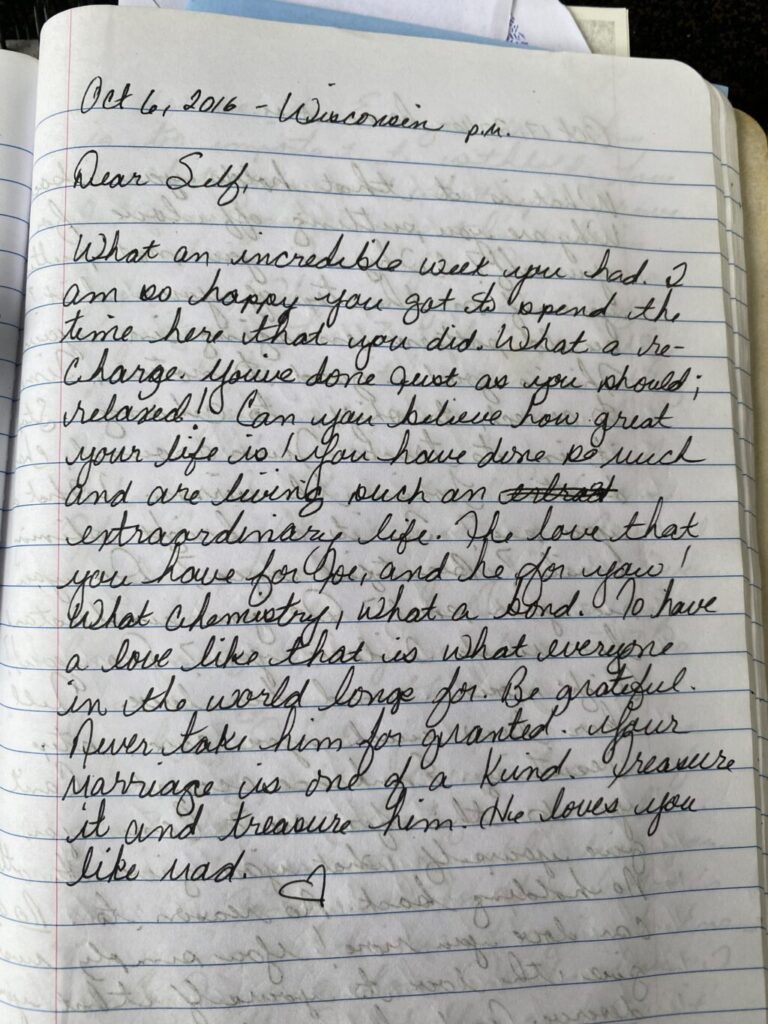 Oct 6, 2016 - Wisconsin p.m.
Dear Self,
What an incredible week you had. I
am so happy you got to spend the
time here that you did. What a re-
charge. You've done just as you should;
relaxed! Can you believe how great
your life is! You have done so much
and are living such an
extraordinary life. The love that
you have for Joe, and he for you!
What chemistry, what a bond. To have
a love like that is what everyone
in the world longs for. Be grateful.
Never take him for granted. Your
marriage is one of a kind. Treasure
it and treasure him. He loves you
like mad.